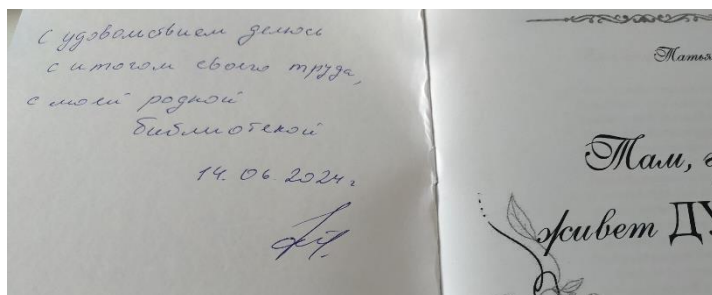 с удовольствием делюсь
с итогом своего труда,
с моей родной
библиотекой
14.06.2024 г
Татья
Там, г
живет ДУ